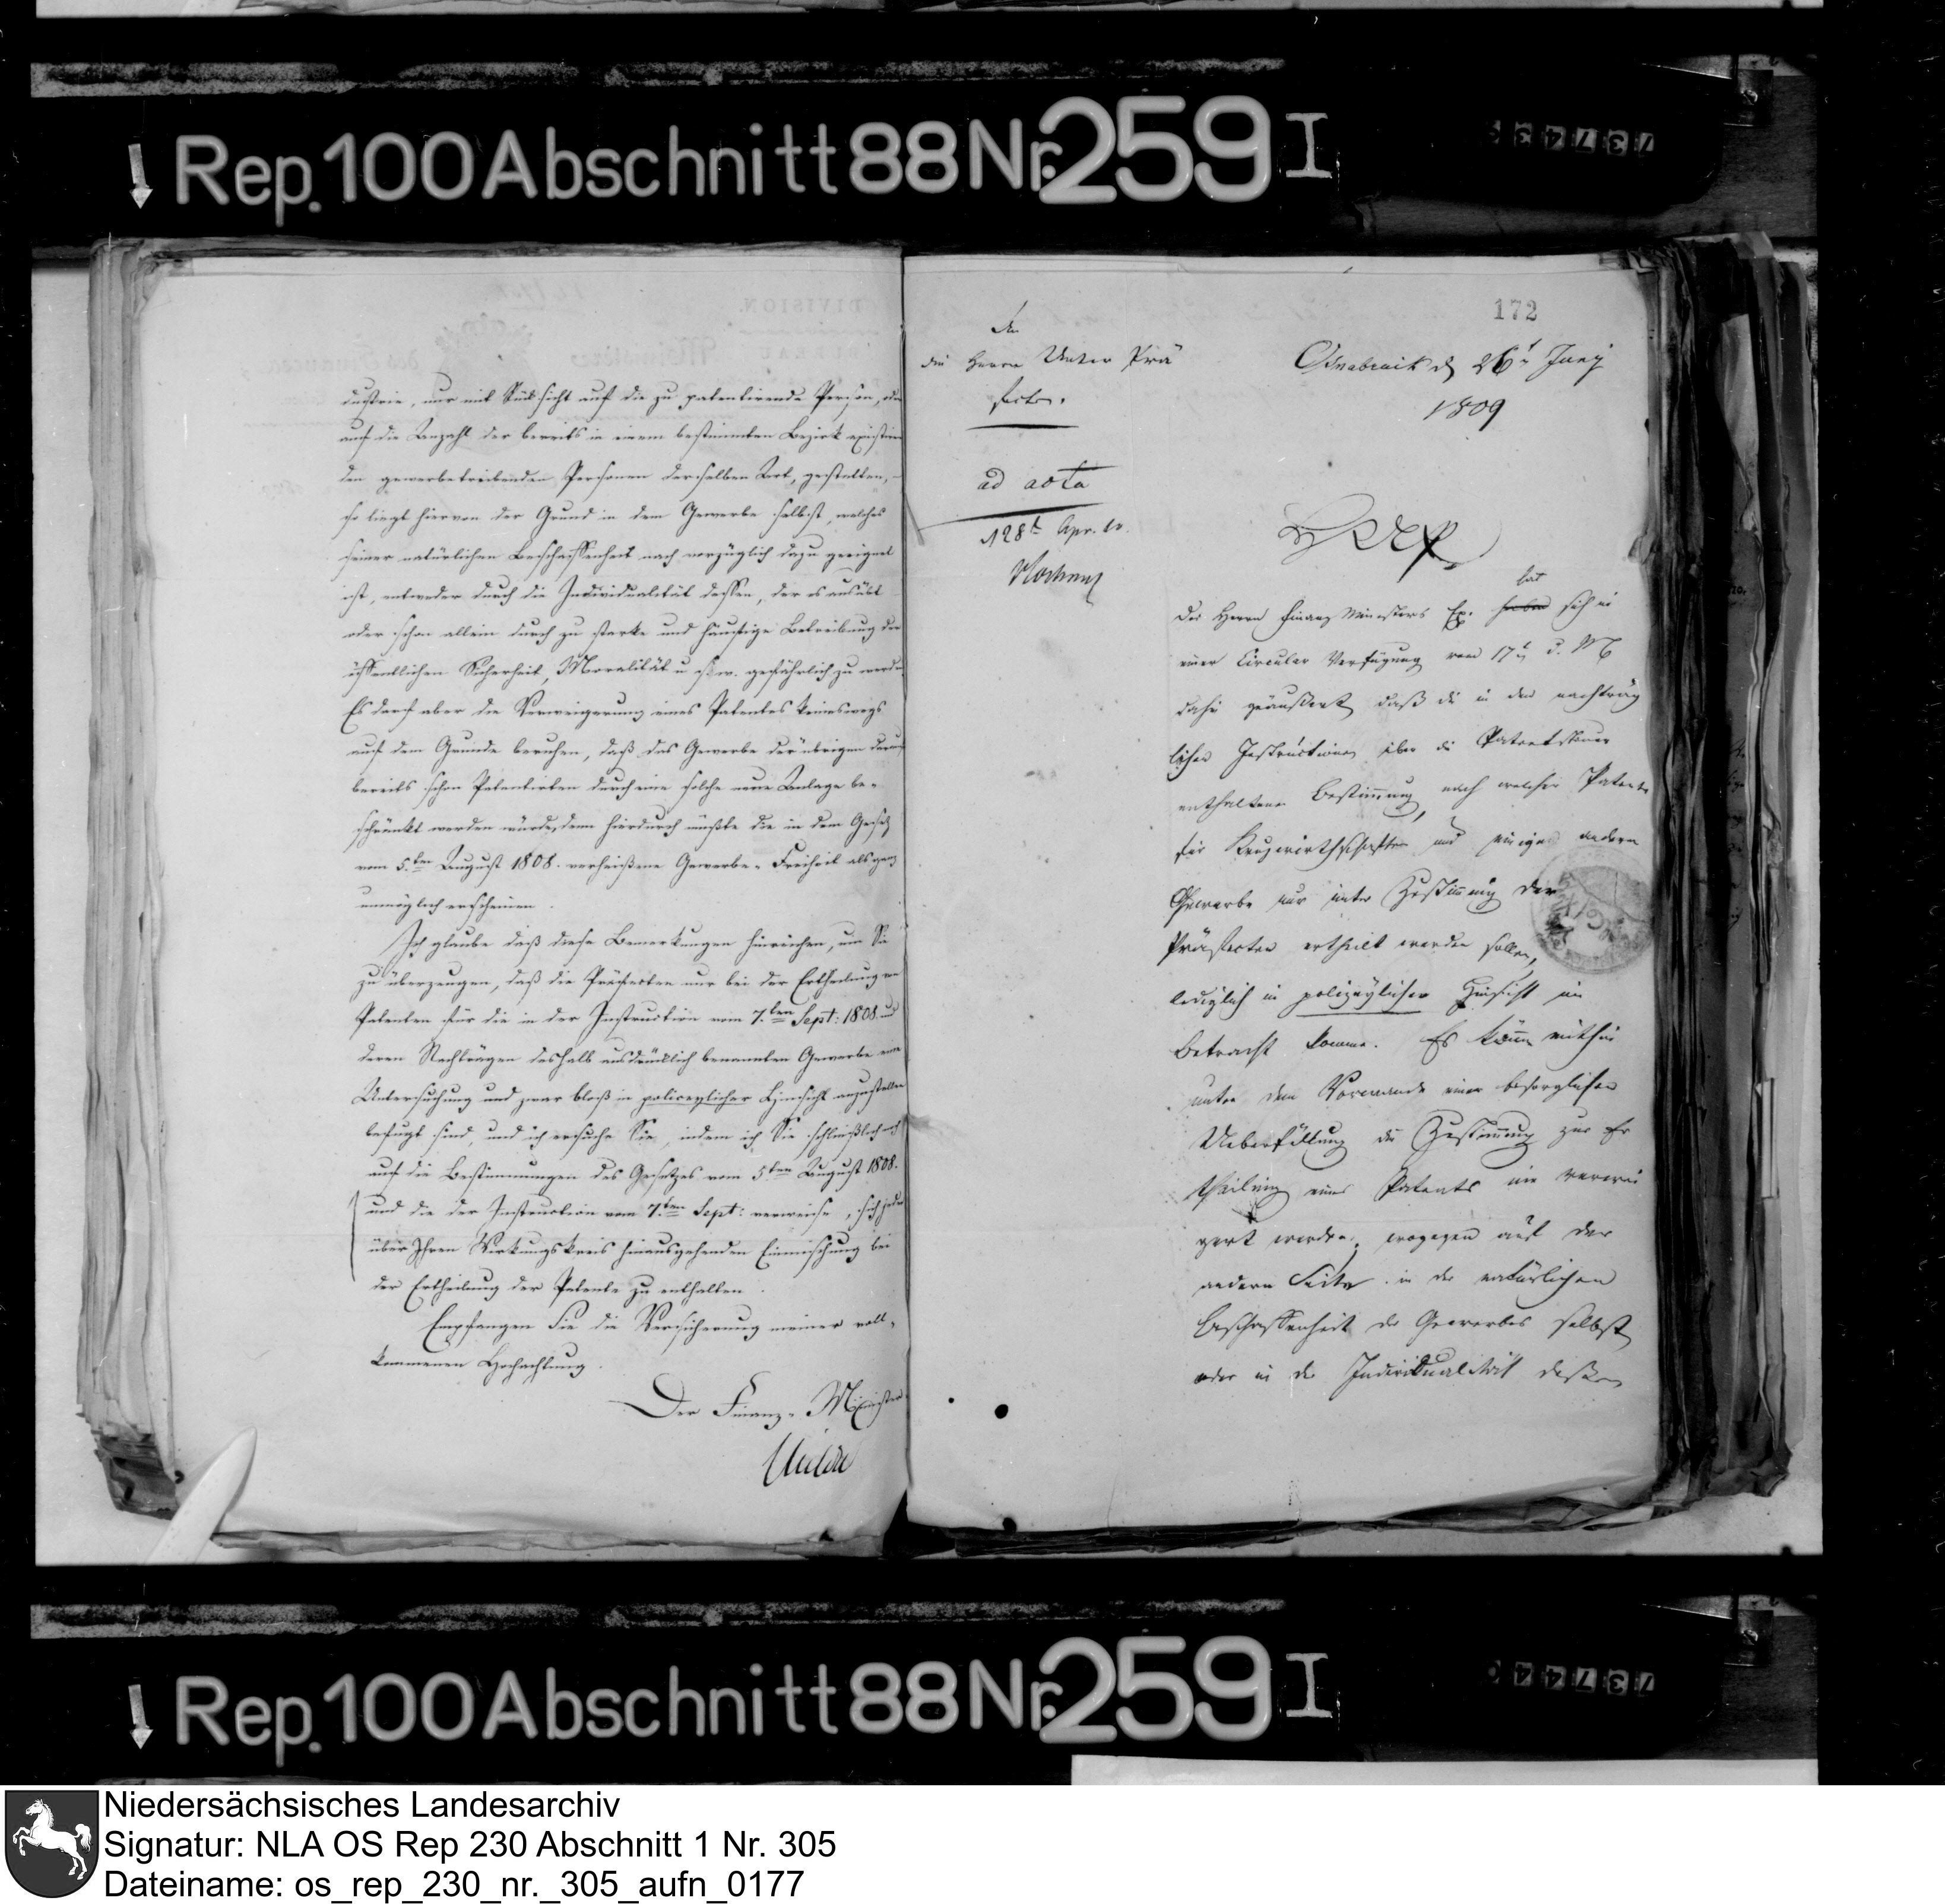 Rep. 100 Abschnitt 88 Nr. 259 I
dustrie, nur mit Rücksicht auf die zu patentirende Person, oder
auf die Anzahl der bereits in einem bestimmten Bezirk existiren
den gewerbetreibenden Personen derselben Art, gestatten,
so liegt hiervon der Grund in dem Gewerbe selbst, welches
seiner natürlichen Beschaffenheit nach vorzüglich dazu geeignet
ist, entweder durch die Individualität dessen, der es ausübt
oder schon allein durch zu starke und häufige Betreibung der
öffentlichen Sicherheit, Moralität u. s. w. gefährlich zu werden
Es darf aber die Verweigerung eines Patentes keineswegs
auf dem Grunde beruhen, daß das Gewerbe der übrigen darauf
bereits schon Patentirten durch eine solche neue Anlage be-
schränkt werden würde, denn hierdurch müßte die in dem Gesetz
vom 5.ten August 1808. verheißene Gewerbe-Freiheit als ganz
unmöglich erscheinen.
Ich glaube daß diese Bemerkungen hinreichen, um Sie
zu überzeugen, daß die Präfecten nur bei der Ertheilung von
Patenten für die in der Instruction vom 7.ten Sept: 1808. und
deren Nachträgen deshalb ausdrücklich benannten Gewerbe eine
Untersuchung und zwar bloß in policeylicher Hinsicht anzustellen
befugt sind, und ich ersuche Sie, indem ich Sie schließlich noch
auf die Bestimmungen des Gesetzes vom 5ten August 1808.
und die der Instruction vom 7.ten Sept: verweise, sich jeder
über Ihren Wirkungskreis hinausgehenden Einmischung bei
der Ertheilung der Patente zu enthalten.
Empfangen Sie die Versicherung meiner voll-
kommenen Hochachtung.
Der Finanz-Minister
172
An
die Herrn Unter Prä
fecten.
ad acta
28t Apr. 10.
Osnabrück d 26t Juny
1809
Des Herrn Finanz Ministers Ex. haben hat sich in
einer Circular Verfügung vom 17t d. M
dahin geäußert, daß die in den nachträg
lichen Instructionen über die Patentsteuer
enthaltene Bestimmung, nach welcher Patente
für Krugwirthschaften und einige andere
Gewerbe nur unter Zustimmung der
Präfecten ertheilt werden sollen,
lediglich in polizeylicher Hinsicht in
Betracht komme. Es könne mithin
unter dem Vorwande einer besorglichen
Ueberfüllung die Zustimmung zur Er
theilung eines Patents nie verwei
gert werden, wogegen auf der
andern Seite in der natürlichen
Beschaffenheit des Gewerbes selbst
oder in der Individualität dessen
Rep. 100 Abschnitt 88 Nr. 259 I
Niedersächsisches Landesarchiv
Signatur: NLA OS Rep 230 Abschnitt 1 Nr. 305
Dateiname: os_rep_230_nr._305_aufn_0177